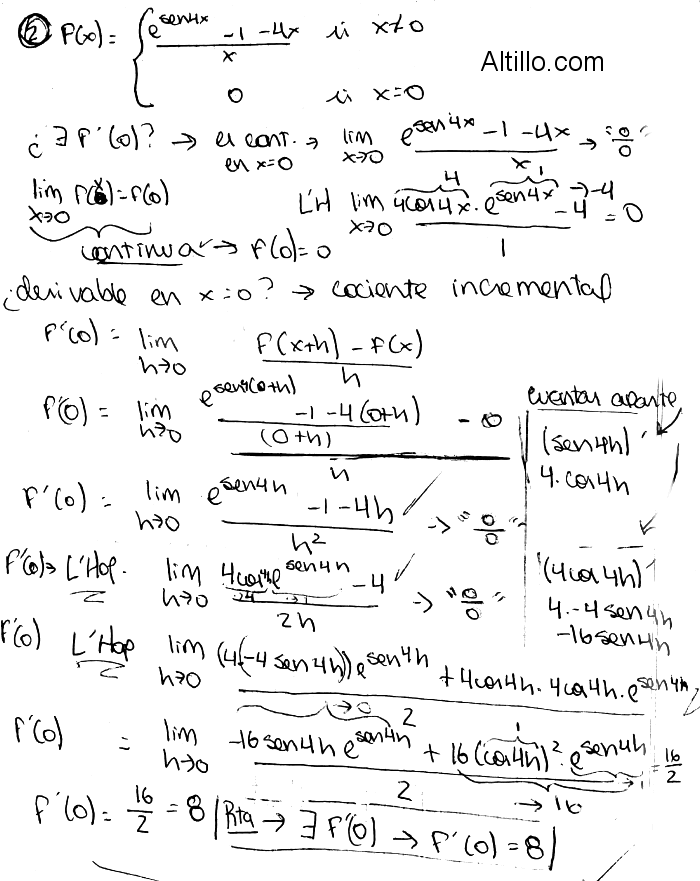 ② F(x) = { e^sen4x - 1 - 4x / x si x≠0
Altillo.com
0 si x=0
¿∃ F'(0)? → es cont. en x=0 → lim x→0 e^sen4x - 1 - 4x / x → "0/0"
lim x→0 F(x) = F(0) L'H lim x→0 4cos4x · e^sen4x - 4 / 1 = 0
4 1 → -4
continua → F(0) = 0
¿derivable en x=0? → cociente incremental
F'(0) = lim h→0 F(x+h) - F(x) / h
F'(0) = lim h→0 e^sen4(0+h) - 1 - 4(0+h) / (0+h) - 0 / h
cuentas aparte
(sen4h)'
4·cos4h
F'(0) = lim h→0 e^sen4h - 1 - 4h / h² → "0/0"
F'(0) → L'Hop. lim h→0 4cos4h e^sen4h - 4 / 2h → "0/0"
(4cos4h)'
4·-4sen4h
-16sen4h
F'(0) L'Hop lim h→0 (4(-4sen4h)) e^sen4h + 4cos4h · 4cos4h · e^sen4h / 2
→0
F'(0) = lim h→0 -16sen4h e^sen4h + 16(cos4h)² · e^sen4h / 2 = 16/2
1 → 1
→ 16
F'(0) = 16/2 = 8 | Rta → ∃ F'(0) → F'(0) = 8 |